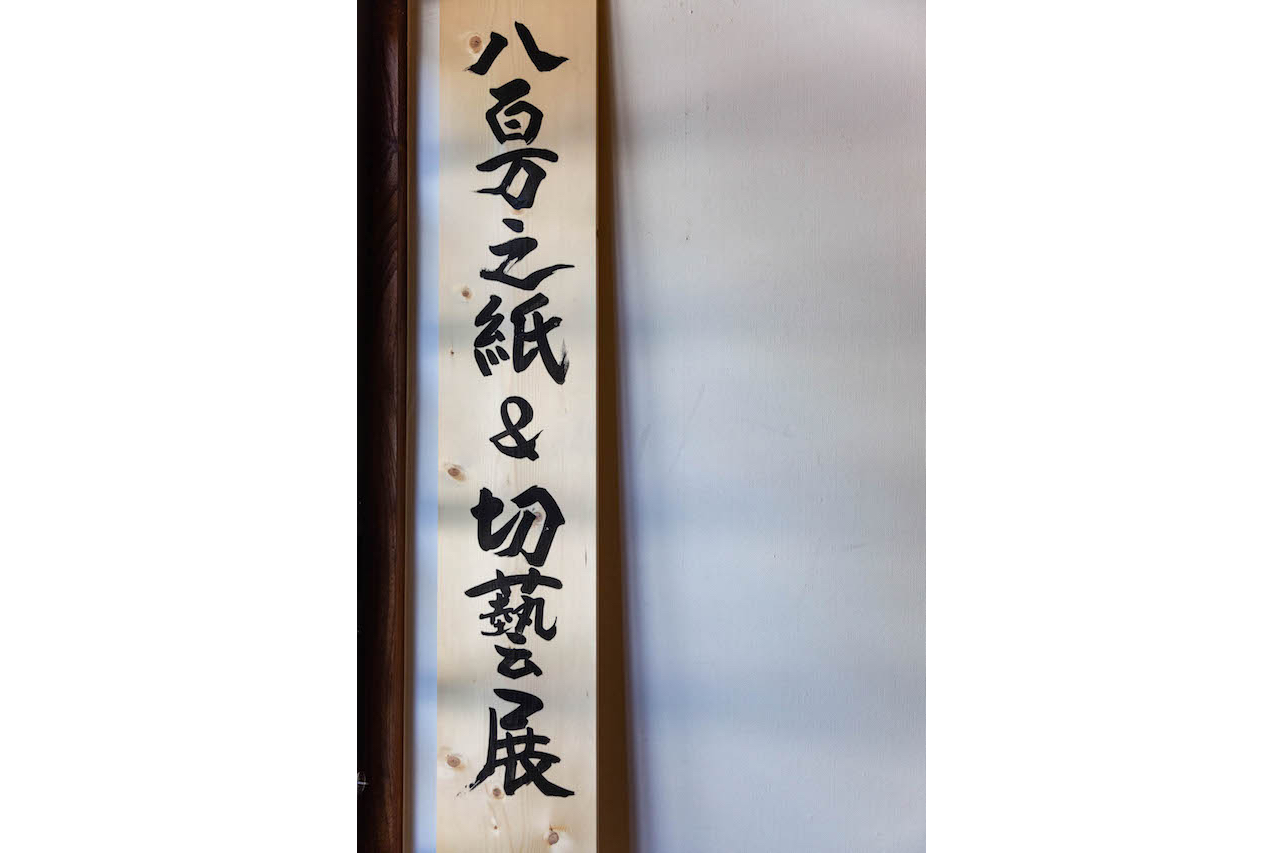 八百万之紙&切藝展